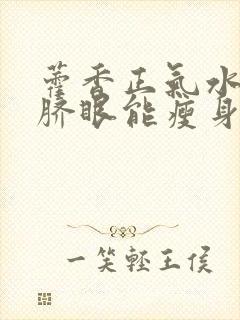 藿香正氣水
脐眼能瘦身
一笑輕王侯